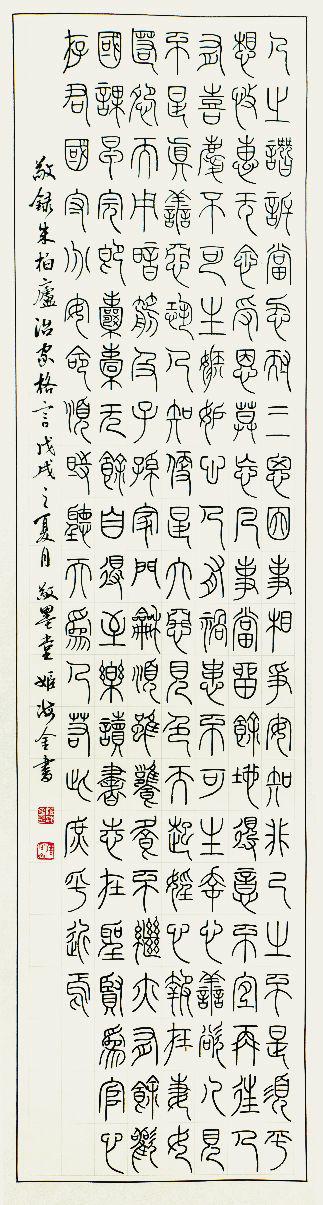 人之譖訴當忍耐三思因事相爭安知非己之不是須平
想施惠无念受恩莫忘凡事當留餘地得意不宜再往人
有喜慶不可生嫉妒心人有禍患不可生幸心善欲人見
不是真善惡恐人知便是大惡見色而起婬心報在妻女
匿怨而用暗箭及子孫家門龢順雖饔飧不繼亦有餘歡
國課早完即囊橐无餘自得至樂讀書志在聖賢為官心
存君國守分安命順時聽天為人若此庶乎近焉
敬錄朱柏廬治家格言戊戌之夏月敬墨堂姬海全書